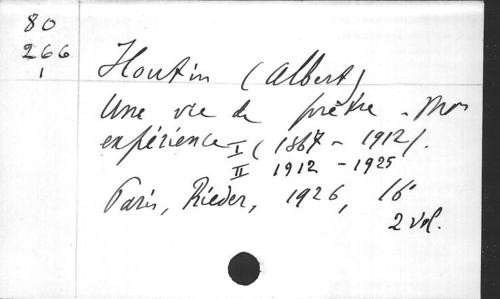 80
266
1
Houtin (Albert)
Une vie de prêtre - Mon
expérience I (1867 - 1912).
II 1912 - 1925
Paris, Rieder, 1926, 16°
2 vol.